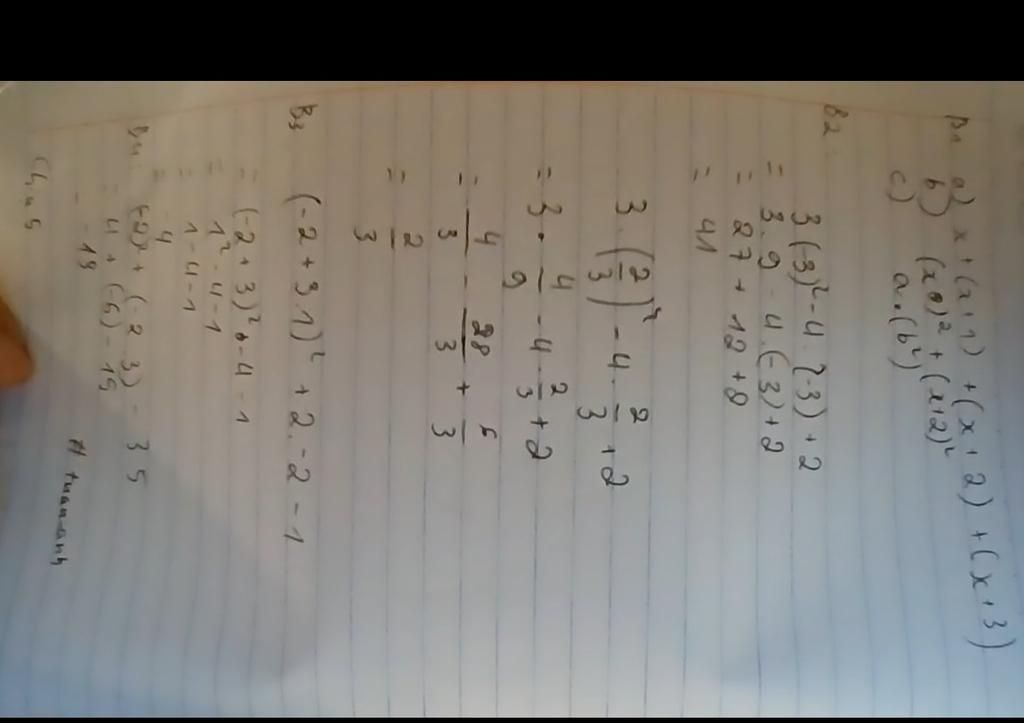 B1 a) x + (x+1) + (x+2) + (x+3)
b) (x)² + (x+2)²
c) a.(b²)
B2. 3(-3)² - 4.(-3) + 2
= 3.9 - 4.(-3) + 2
= 27 + 12 + 8
= 41
3.(2/3)² - 4.2/3 + 2
= 3.4/9 - 4.2/3 + 2
= 4/3 - 8/3 + 6/3
= 2/3
B3 (-2+3.1)² + 2.-2 - 1
= (-2+3)² + -4 - 1
= 1² - 4 - 1
= 1 - 4 - 1
= 4
B4. (-2)² + (-2.3) - 3 5
= 4 + (-6) - 15
- 13
# tuan-anh